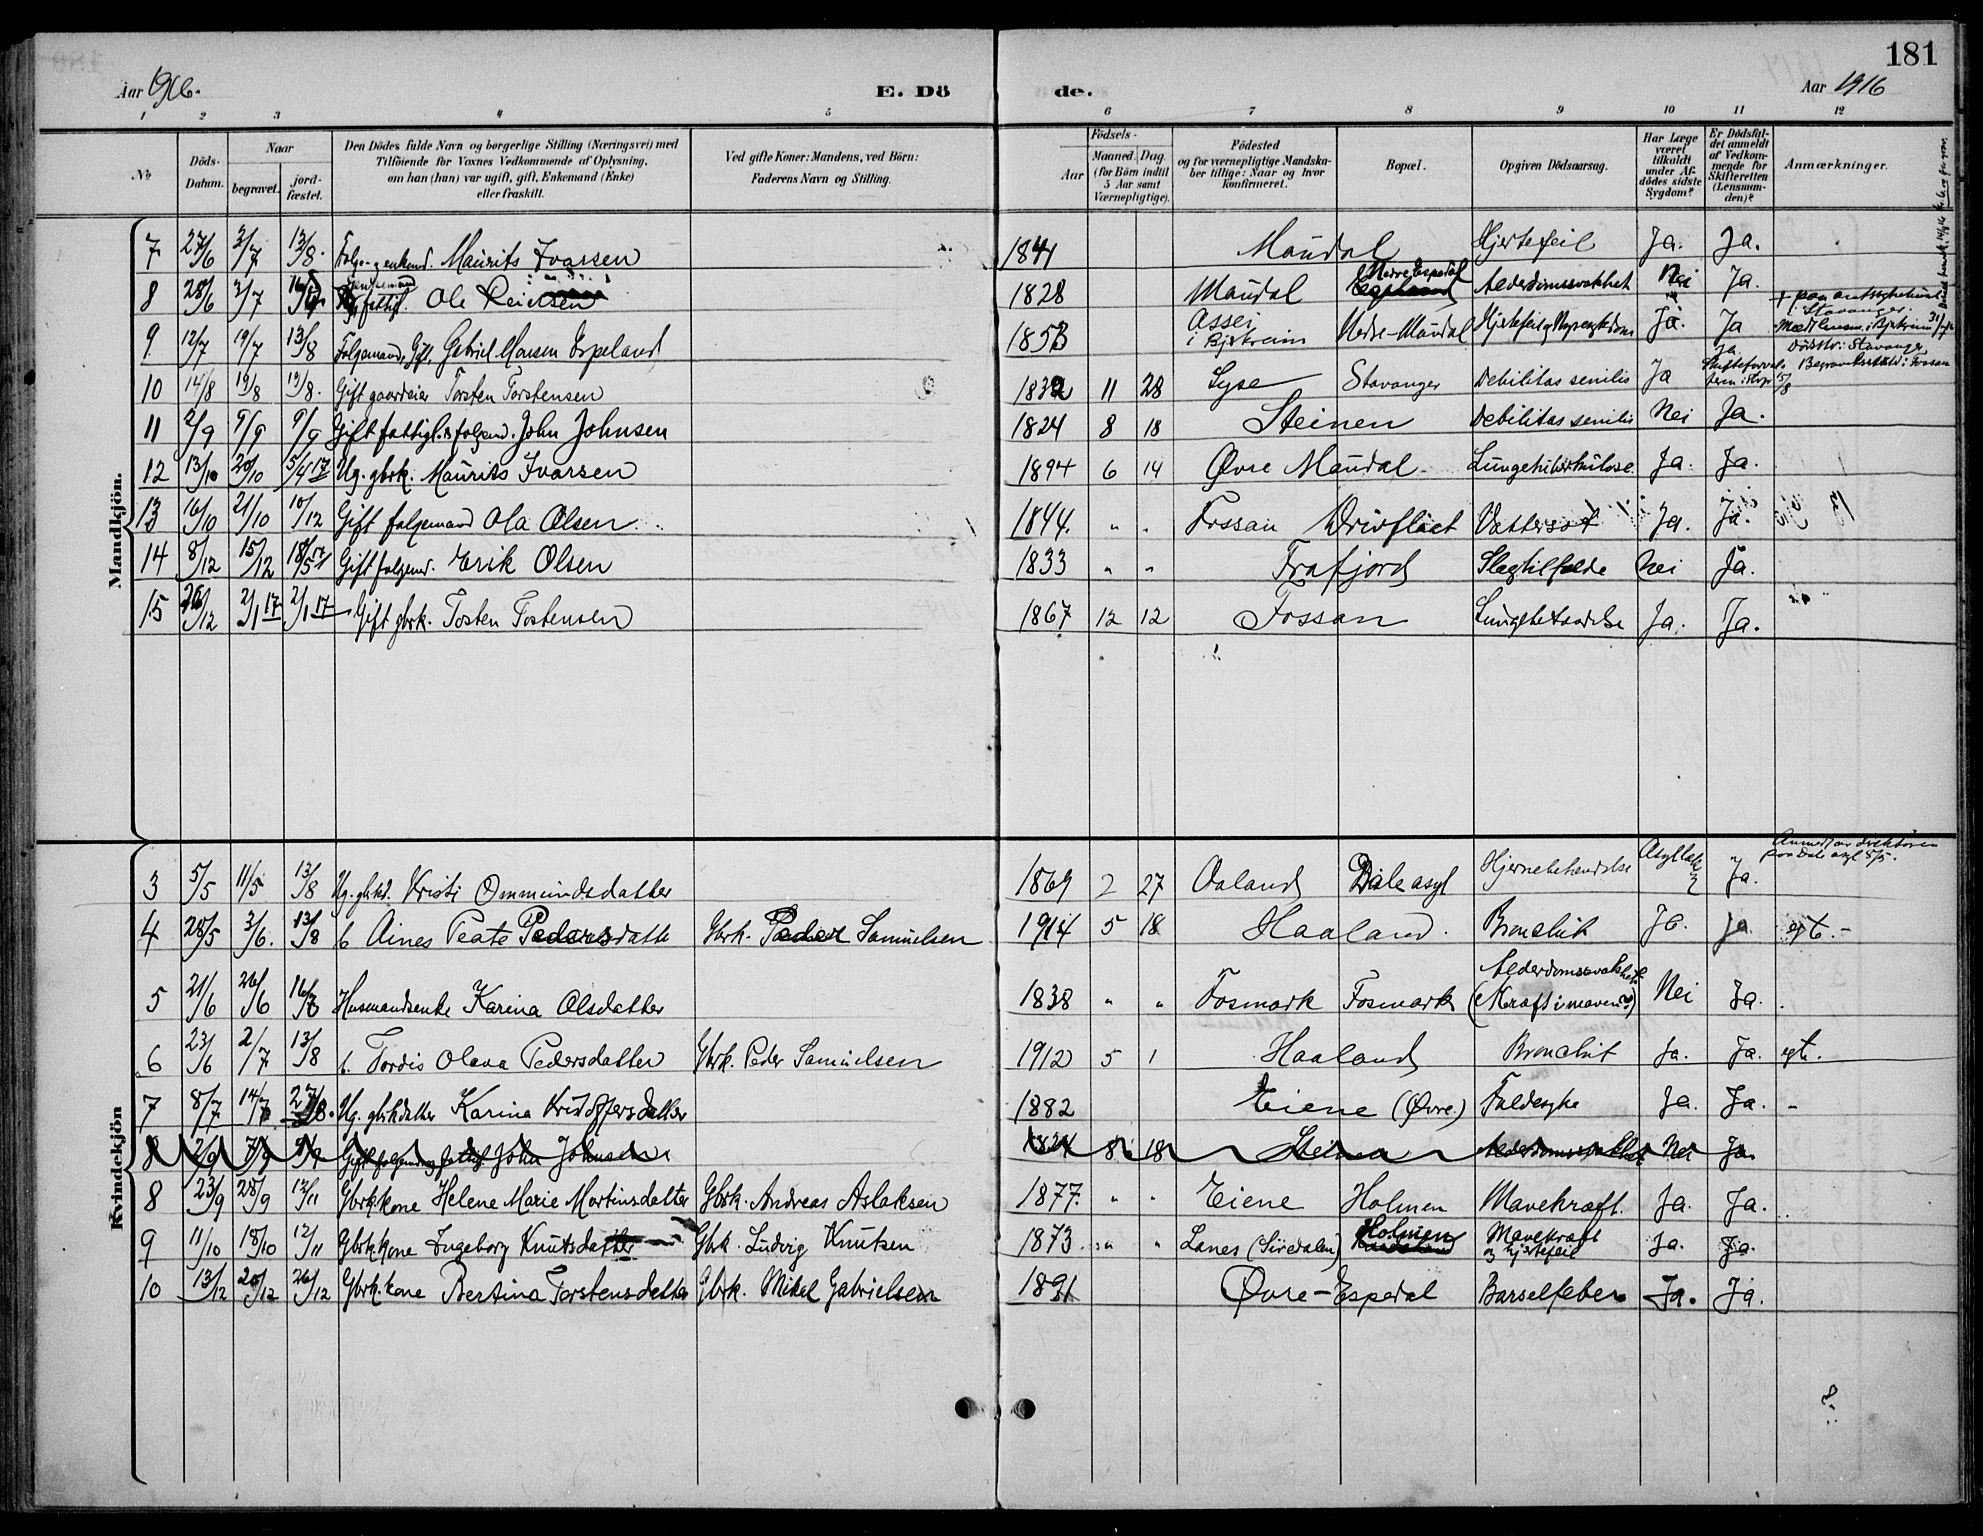 181
Aar 1916.
E. Dö de.
Aar 1916
1 2 3 4 5 6 7 8 9 10 11 12
No
Döds-Datum.
Naar
begravet.
jord-fæstet.
Den Dödes fulde Navn og borgerlige Stilling (Næringsvei) med
Tilföiende for Voxnes Vedkommende af Oplysning,
om han (hun) var ugift, gift, Enkemand (Enke)
eller fraskilt.
Ved gifte Koner: Mandens, ved Börn:
Faderens Navn og Stilling.
Födsels-
Aar
Maaned. Dag.
(for Börn indtil
5 Aar samt
Værnepligtige).
Födested
og for værnepligtige Mandska-
ber tillige: Naar og hvor
konfirmeret.
Bopæl.
Opgiven Dödsaarsag.
Har Læge
været
tilkaldt
under Af-
dödes sidste
Sygdom?
Er Dödsfal-
det anmeldt
af Vedkom-
mende for
Skifteretten
(Lensman-
den)?
Anmærkninger.
Mandkjön.
7 27/6 3/7 13/8 Maurits Ivarsen 1841 Maudal Hjertefeil Ja. Ja.
8 28/6 3/7 Ole 1828 Maudal Nedre Espedal Alderdomssvakhet Nei Ja.
9 12/7 19/7 13/8 Folgemand, Gift, Gabriel Monsen Espeland 1853 Assei i Bjerkreim Nedre-Maudal Ja. Ja
+ paa amtssykehuset i Stavanger
10 14/8 19/8 19/8. Gift gaardeier Torsten Torstensen 1832 11 28 Lyse Stavanger Debilitas senilis Ja
Dödsstr: Stavanger
Begravelsessted: Fossan
11 2/9 9/9 9/9 Gift fattigl. folgem. John Johnsen 1824 8 18 Steinen Debilitas senilis Nei Ja.
12 13/10 20/10 5/4 17 Ug. gbrk. Maurits Ivarsen 1894 6 14 Øvre Maudal Lungetuberkulose Ja. Ja.
13 16/10 21/10 10/12 Gift folgemand Ola Olsen 1844. " " Fossan Drivflaat Vattersot Ja. Ja.
14 8/12 15/12 18/5 17 Gift folgem. Erik Olsen 1833 " " Frafjord Slagtilfelde Nei Ja.
15 26/12 2/1 17 2/1 17 Gift gbrk. Tosten Tostensen 1867 12 12 Fossan Ja. Ja.
Kvindekjön
3 5/5 11/5 13/8 Ug. Kristi Ommundsdatter 1869 2 27 Oaland Dale asyl Hjernebetændelse Ja.
Anmeldt av direktøren paa Dale asyl 8/5.
4 28/5 3/6. 13/8 b. Aines Peate Pedersdatte Gbrk. Peder Samuelsen 1914 5 18 Haaland. Bronchit Ja. Ja
5 21/6 26/6 16/8 Husmandsenke Karina Olsdatter 1838 " " Fosmark Fosmark Alderdomssvakhet (Kræft i maven?) Nei Ja.
6 23/6 2/7 13/8 b. Tordis Olava Pedersdatter Gbrk. Peder Samuelsen 1912 5 1 Haaland Bronchit Ja. Ja. egt.
7 8/7 14/7 27/8. Ug. gbrkdatter Karina Kristoffersdatter 1882 Eiene (Øvre) Faldesyke Ja. Ja. -
8 2/9 7/9 9/9 Gift folgemand fattigl. John Johnsen 1824 8 18 Steinen Alderdomssvakhet Nei Ja
8 23/9 28/9 12/11 Gbrk.kone Helene Marie Martinsdatter Gbrk. Andreas Aslaksen 1877. " " Eiene Holmen Mavekræft. Ja. Ja.
9 11/10 18/10 12/11 Gbrk.kone Ingeborg Knutsdatter Gbrk. Ludvig Knutsen 1873. " " Lanes (Siredalen) Holmen Mavekræft og hjertefeil Ja. Ja.
10 13/12 20/12 26/12 Gbrk.kone Bertina Torstensdatter Gbrk. Mikal Gabrielsen 1891 Øvre-Espedal Barselfeber Ja. Ja.